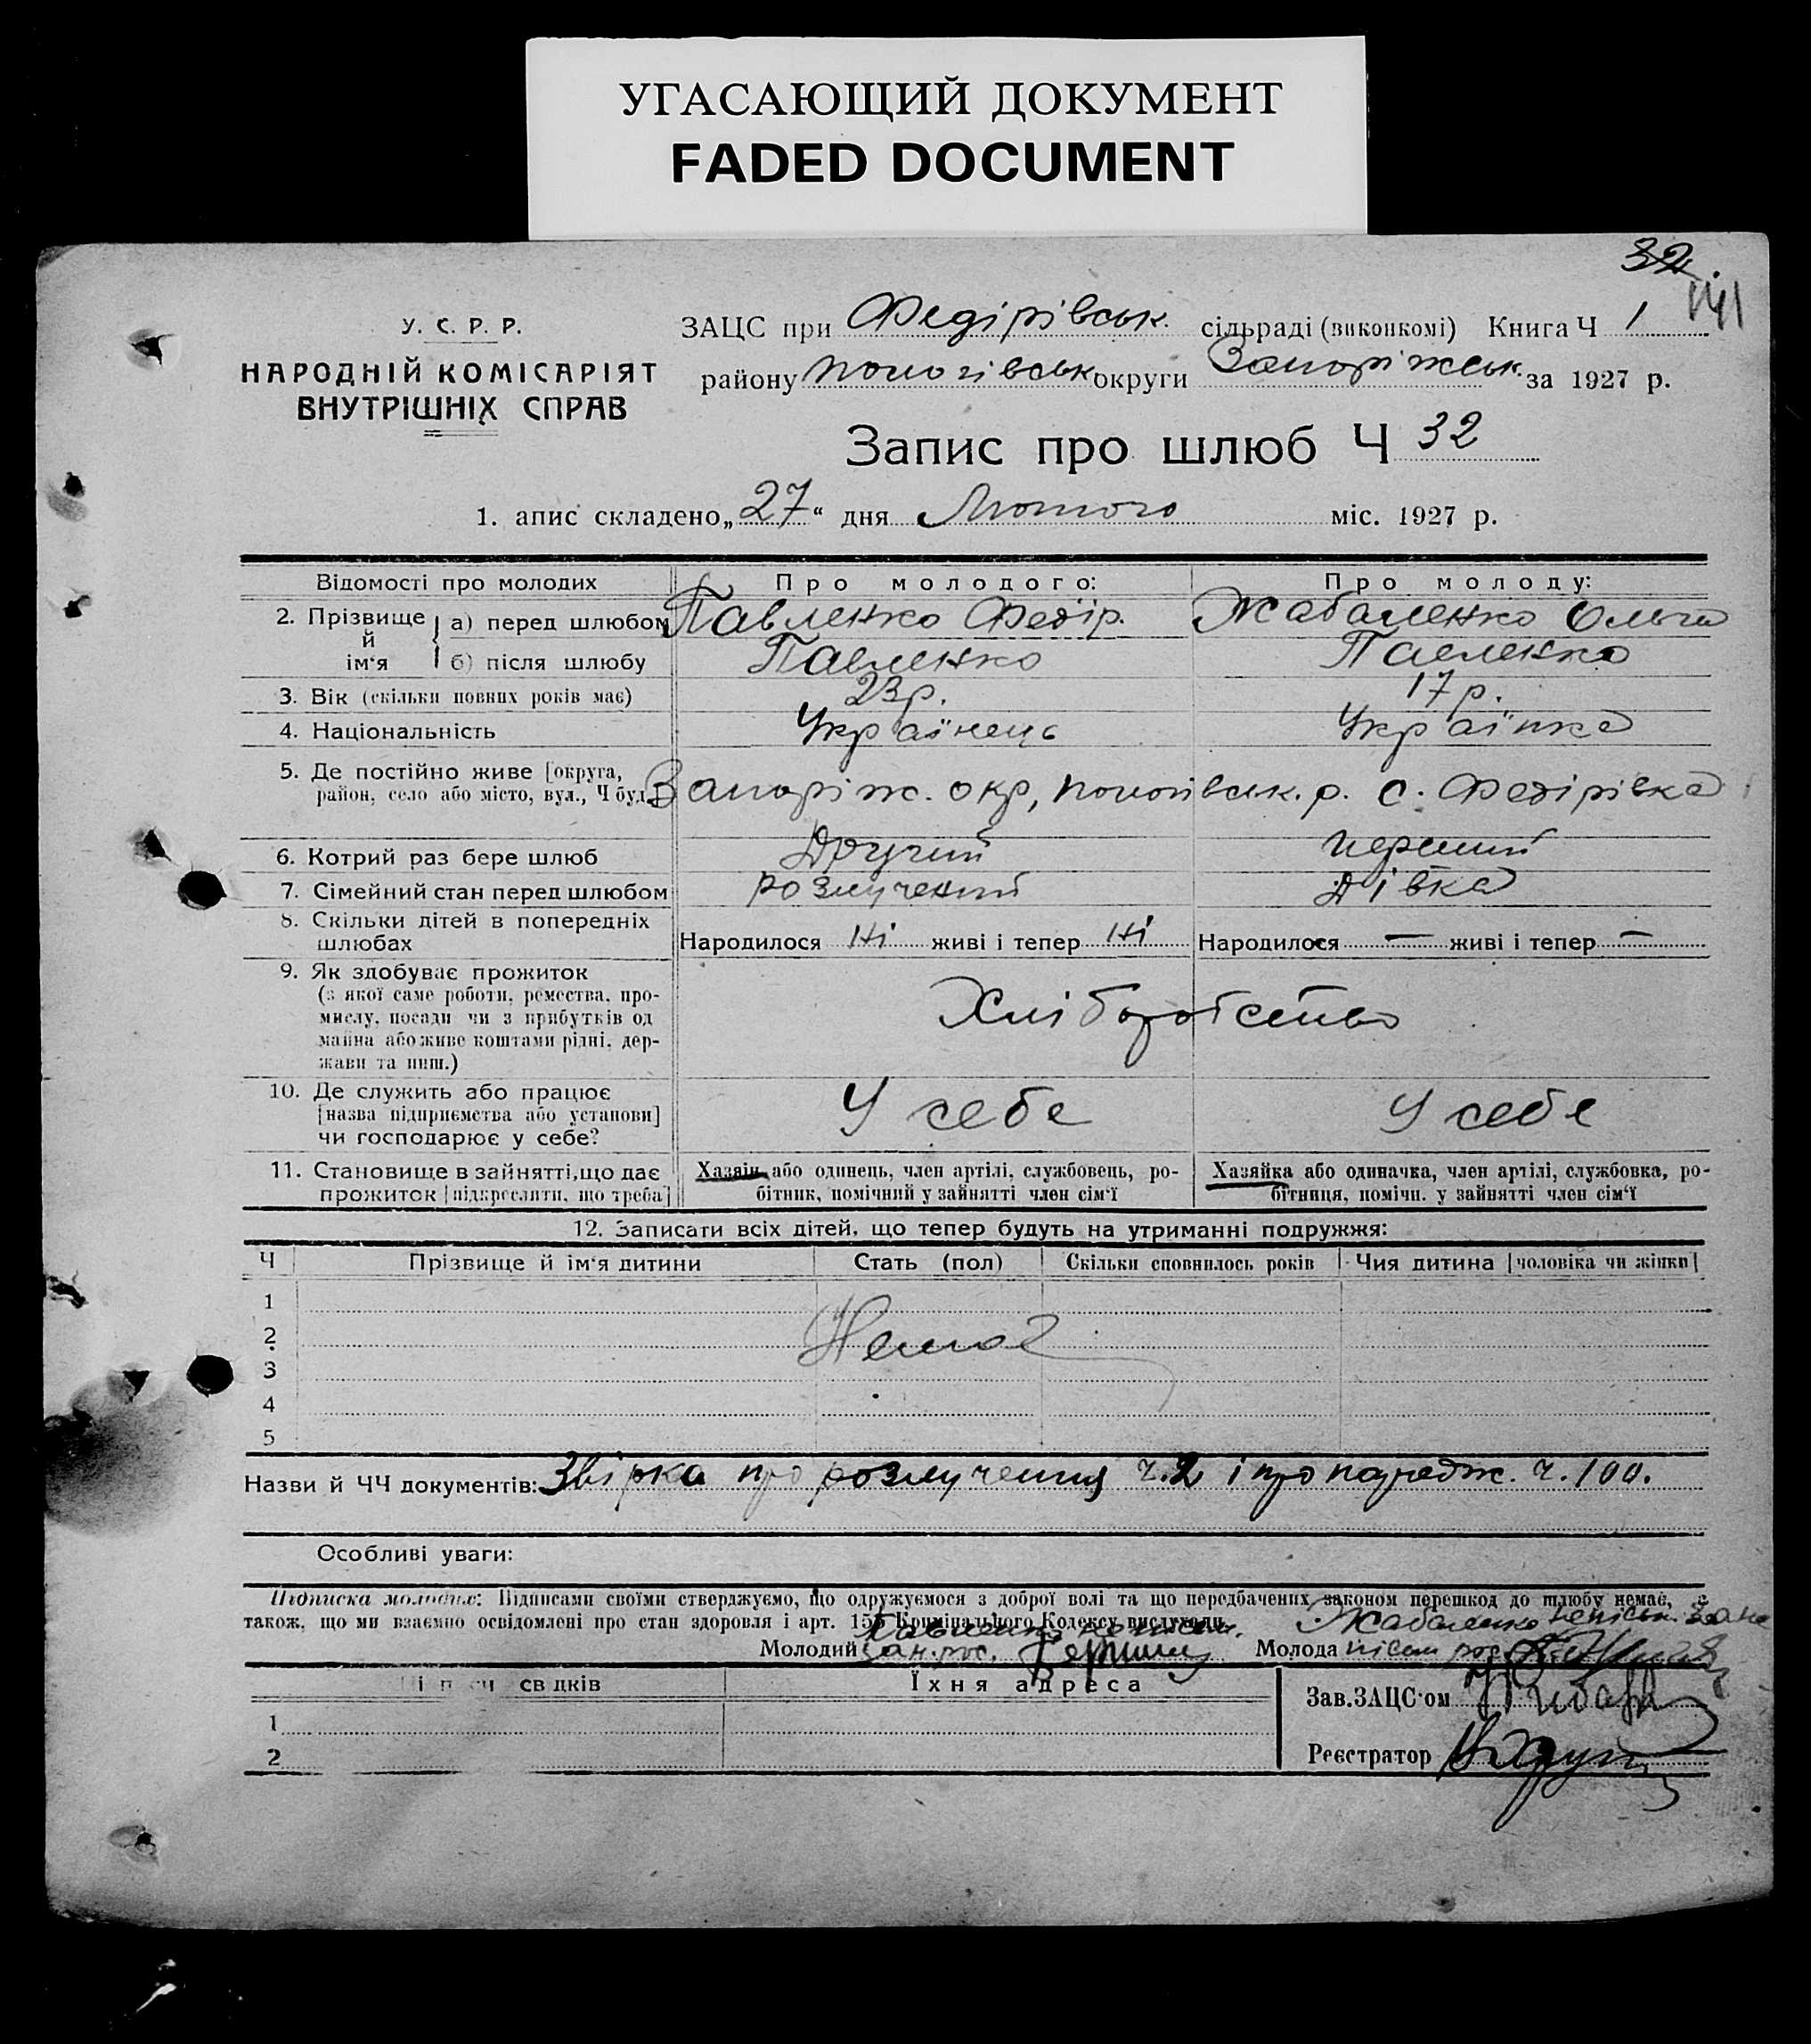 УГАСАЮЩИЙ ДОКУМЕНТ
FADED DOCUMENT
32.
141
У. С. Р. Р.
НАРОДНІЙ КОМІСАРІЯТ
ВНУТРІШНІХ СПРАВ
ЗАЦС при Федірівськ. сільраді (виконкомі) Книга Ч 1
району Пологівськ округи Запоріжськ. за 1927 р.
Запис про шлюб Ч 32
1. апис складено „27“ дня Лютого міс. 1927 р.
Відомості про молодих Про молодого: Про молоду:
2. Прізвище й ім'я а) перед шлюбом Павленко Федір. Жабаленко Ольга
б) після шлюбу Павленко Павленко
3. Вік (скільки повних років має) 23р. 17р.
4. Національність Українець Українка
5. Де постійно живе [округа,
район, село або місто, вул., Ч буд.] Запоріж. окр, Пологівськ. р. с. Федірівка
6. Котрий раз бере шлюб Другий перший
7. Сімейний стан перед шлюбом розлучений дівка
8. Скільки дітей в попередніх
шлюбах Народилося Ні живі і тепер Ні Народилося — живі і тепер —
9. Як здобуває прожиток
(з якої саме роботи, ремества, про-
мислу, посади чи з прибутків од
майна або живе коштами рідні, дер-
жави та инш.) Хліборобство
10. Де служить або працює
[назва підприємства або установи]
чи господарює у себе? У себе У себе
11. Становище в зайнятті, що дає
прожиток [підкреслити, що треба]
Хазяїн або одинець, член артілі, службовець, ро-
бітник, помічний у зайнятті член сім'ї
Хазяйка або одиначка, член артілі, службовка, ро-
бітниця, помічн. у зайнятті член сім'ї
12. Записати всіх дітей, що тепер будуть на утриманні подружжя:
Ч Прізвище й ім'я дитини Стать (пол) Скільки сповнилось років Чия дитина [чоловіка чи жінки]
1
2 Немає
3
4
5
Назви й ЧЧ документів: Звірка про розлучення ч.2 і про народж. ч. 100.
Особливі уваги:
Підписка молодих: Підписами своїми стверджуємо, що одружуємося з доброї волі та що передбачених законом перешкод до шлюбу немає, а
також, що ми взаємно освідомлені про стан здоровля і арт. 155 Кримінального Кодексу вислухали.
Молодий Павленко Молода Жабаленко
св дків Їхня адреса
Зав. ЗАЦС'ом
1
Реєстратор
2